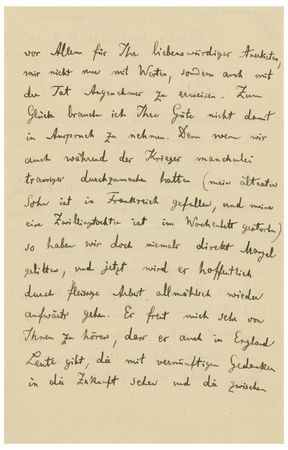 vor Allem für Ihr liebenswürdiges Anerbieten,
mir nicht nur mit Worten, sondern auch mit
der Tat Angenehmes zu erweisen. Zum
Glück brauche ich Ihre Güte nicht damit
in Anspruch zu nehmen. Denn wenn wir
auch während der Krieges mancherlei
trauriges durchzumachen hatten (mein ältester
Sohn ist in Frankreich gefallen, und meine
eine Zwillingstochter ist im Wochenbett gestorben)
so haben wir doch niemals direkt Mangel
gelitten, und jetzt wird es hoffentlich
durch fleissige Arbeit allmählich wieder
aufwärts gehen. Es freut mich sehr von
Ihnen zu hören, dass es auch in England
Leute gibt, die mit vernünftigen Gedanken
in die Zukunft sehen und die zwischen